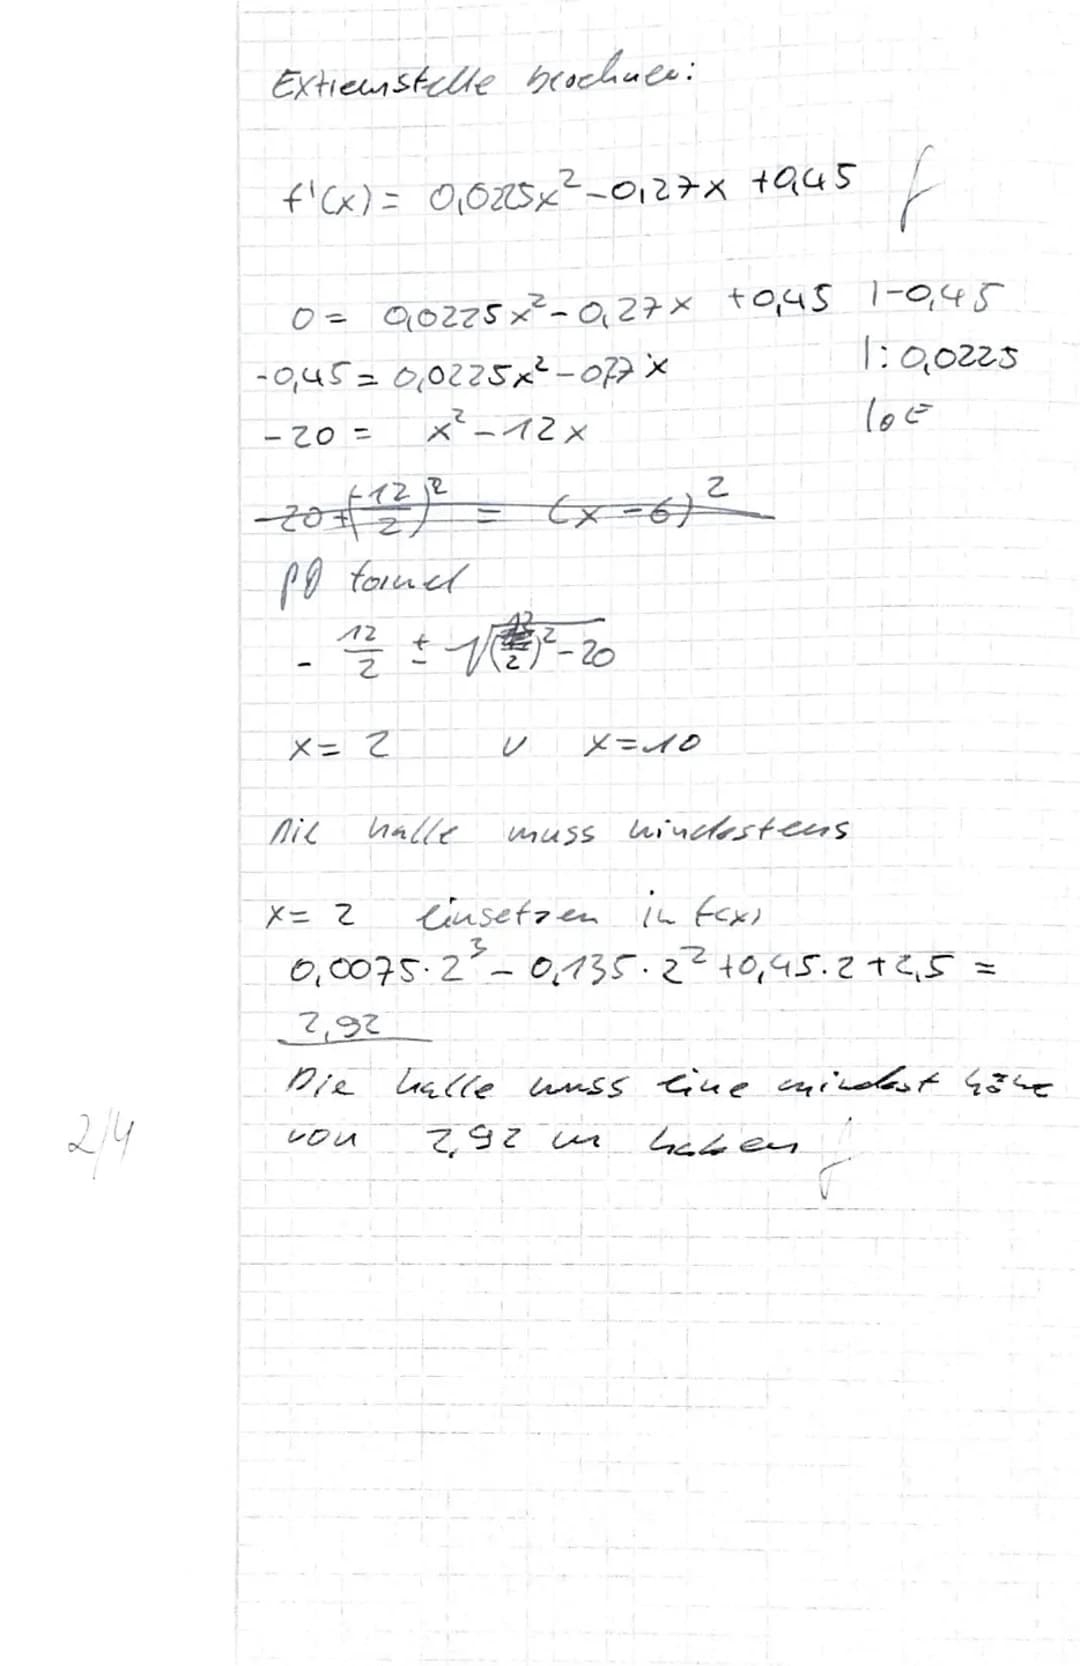 Extremstelle berechnen:
f'(x) = 0,0225x² - 0,27x + 0,45
0 = 0,0225x² - 0,27x + 0,45 | - 0,45
-0,45 = 0,0225x² - 0,27x | : 0,0225
-20 = x² - 12x | QE
-20 + (-12/2)² = (x - 6)²
pq formel
- 12/2 ± √((12/2)² - 20
x = 2 ∨ x = 10
Die halle muss mindestens
x = 2 einsetzen in f(x)
0,0075 · 2³ - 0,135 · 2² + 0,45 · 2 + 2,5 =
2,92
Die halle muss eine mindest höhe
2/4 von 2,92 m haben